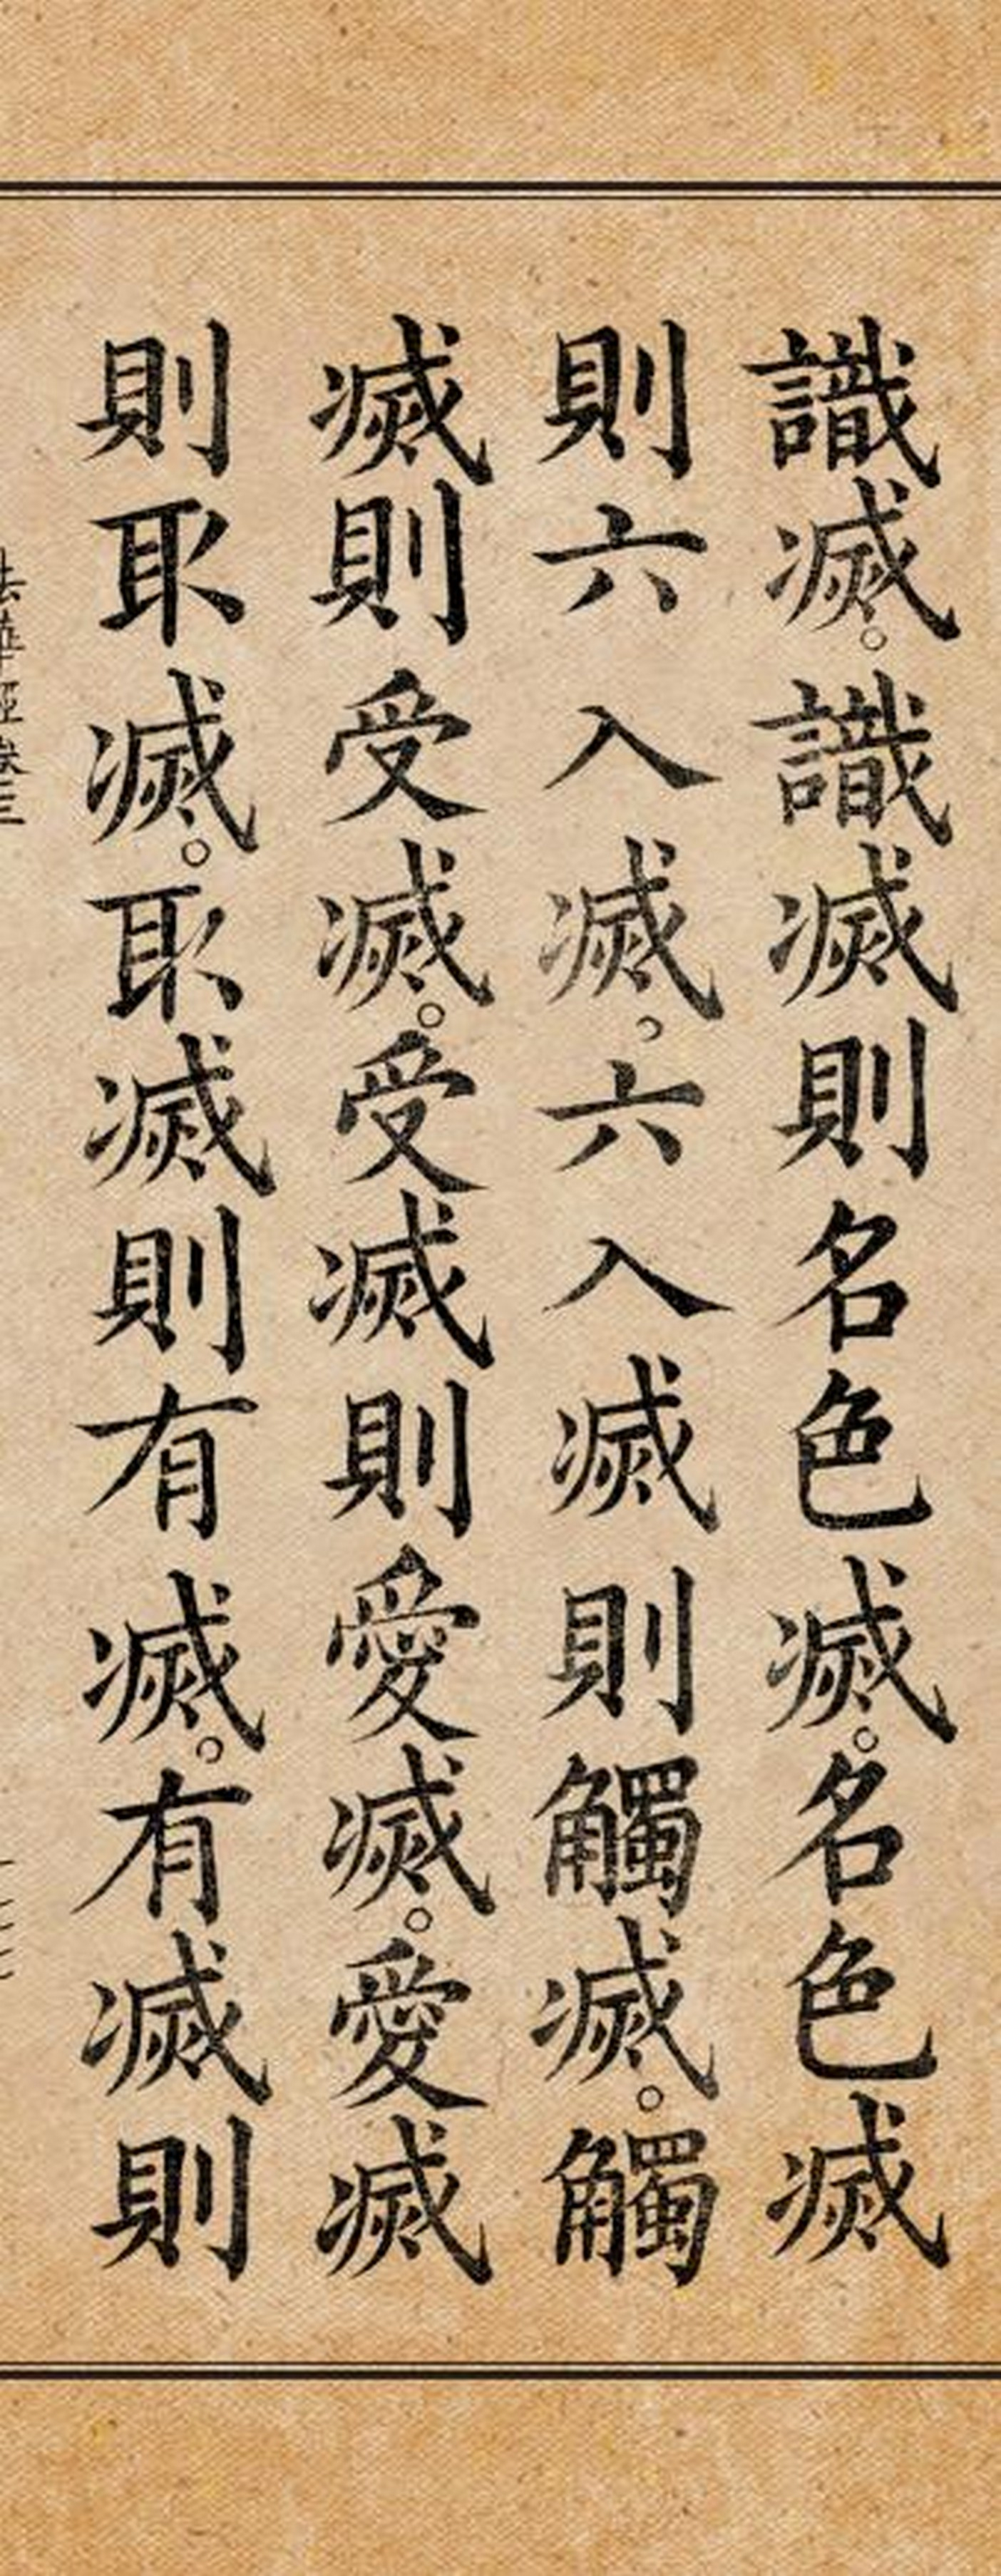 識滅。識滅則名色滅。名色滅
則六入滅。六入滅則觸滅。觸
滅則受滅。受滅則愛滅。愛滅
則取滅。取滅則有滅。有滅則
法華經卷三